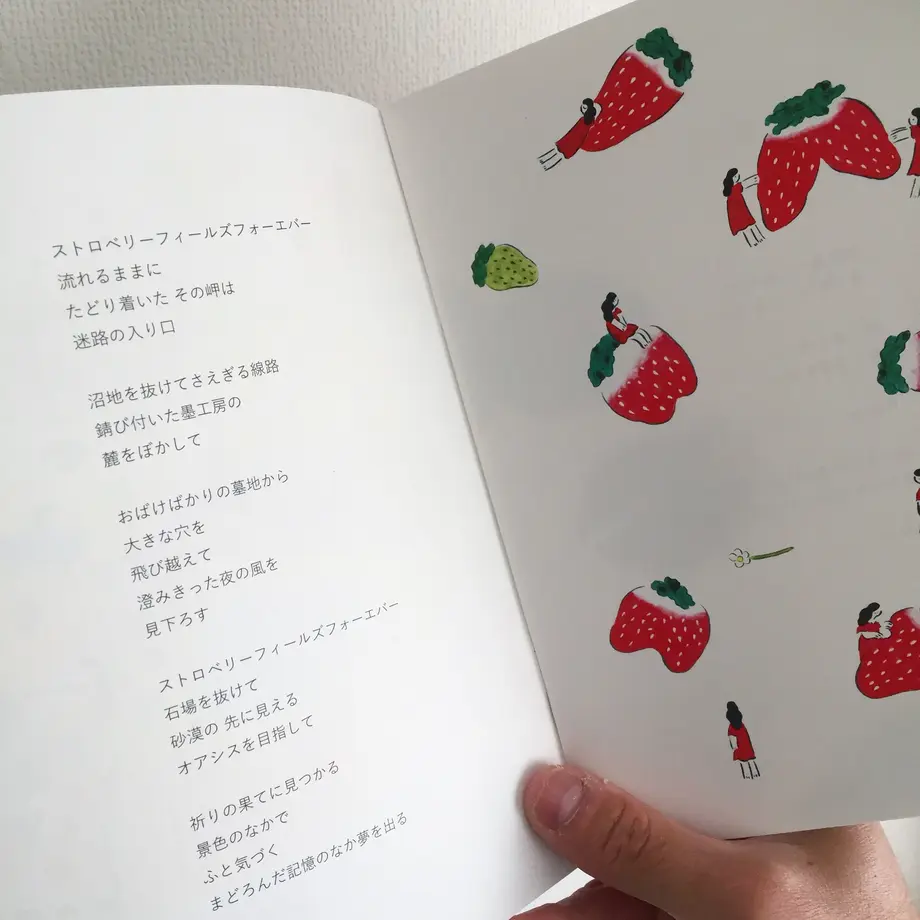 ストロベリーフィールズフォーエバー
流れるままに
たどり着いた その岬は
迷路の入り口
沼地を抜けてさえぎる線路
錆び付いた墨工房の
麓をぼかして
おばけばかりの墓地から
大きな穴を
飛び越えて
澄みきった夜の風を
見下ろす
ストロベリーフィールズフォーエバー
石場を抜けて
砂漠の 先に見える
オアシスを目指して
祈りの果てに見つかる
景色のなかで
ふと気づく
まどろんだ記憶のなか夢を出る